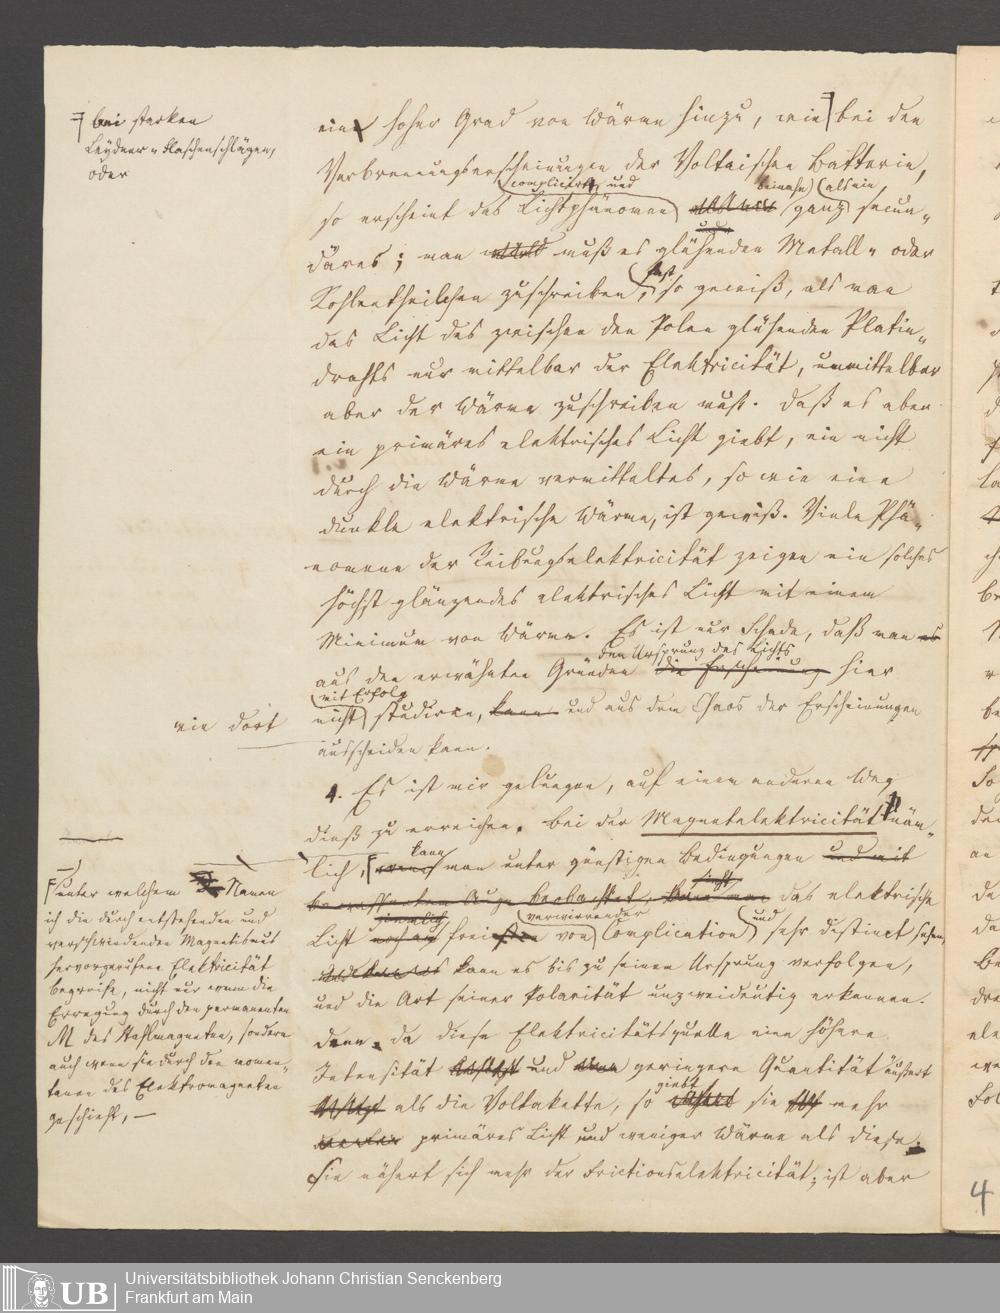 bei starken
Leydner- u Flaschenschlägen,
oder
ein hoher Grad von Wärme hinzu, wie bei den
Verbrennungserscheinungen der Voltaischen Batterie,
complicirte und
beinahe als ein
so erscheint das Lichtphänomen ganz secun-
däres; man muß es glühenden Metall- oder
fast
Kohlentheilchen zuschreiben, so gewiß, als man
das Licht des zwischen den Polen glühenden Platin-
drahts nur mittelbar der Elektricität, unmittelbar
aber der Wärme zuschreiben muß. Daß es aber
ein primäres elektrisches Licht giebt, ein nicht
durch die Wärme vermitteltes, so wie eine
dunkle elektrische Wärme, ist gewiß. Viele Phä-
nomene der Reibungselektricität zeigen ein solches
höchst glänzendes elektrisches Licht mit einem
Minimum von Wärme. Es ist nur Schade, daß man es
den Ursprung des Lichts
aus den erwähnten Gründen die Erscheinung hier
mit Erfolg
wie dort
nicht studiren, kann und aus dem Chaos der Erscheinungen
ausscheiden kann.
4. Es ist mir gelungen, auf einem anderen Weg
dieß zu erreichen. Bei der Magnetelektricität näm-
kann
lich, wenn man unter günstigen Bedingungen und mit
bewaffnetem Auge beobachtet, kann man das elektrische
verwirrender und
Licht noch frei von Complication sehr distinct sehen,
kann es bis zu seinem Ursprung verfolgen,
und die Art seiner Polarität unzweideutig erkennen.
Denn da diese Elektricitätsquelle eine höhere
Intensität besitzt und eine geringere Quantität äußert
giebt
als die Voltakette, so sie mehr
primäres Licht und weniger Wärme als diese.
Sie nähert sich mehr der Frictionselektricität; ist aber
unter welchem Namen
ich die durch entstehenden und
verschwindenden Magnetismus
hervorgerufene Elektricität
begreife, nicht nur wenn die
Erregung durch den permanenten
M des Stahlmagneten, sondern
auch wenn sie durch den momen-
tanen des Elektromagneten
geschieht, —
4
Universitätsbibliothek Johann Christian Senckenberg
Frankfurt am Main
UB